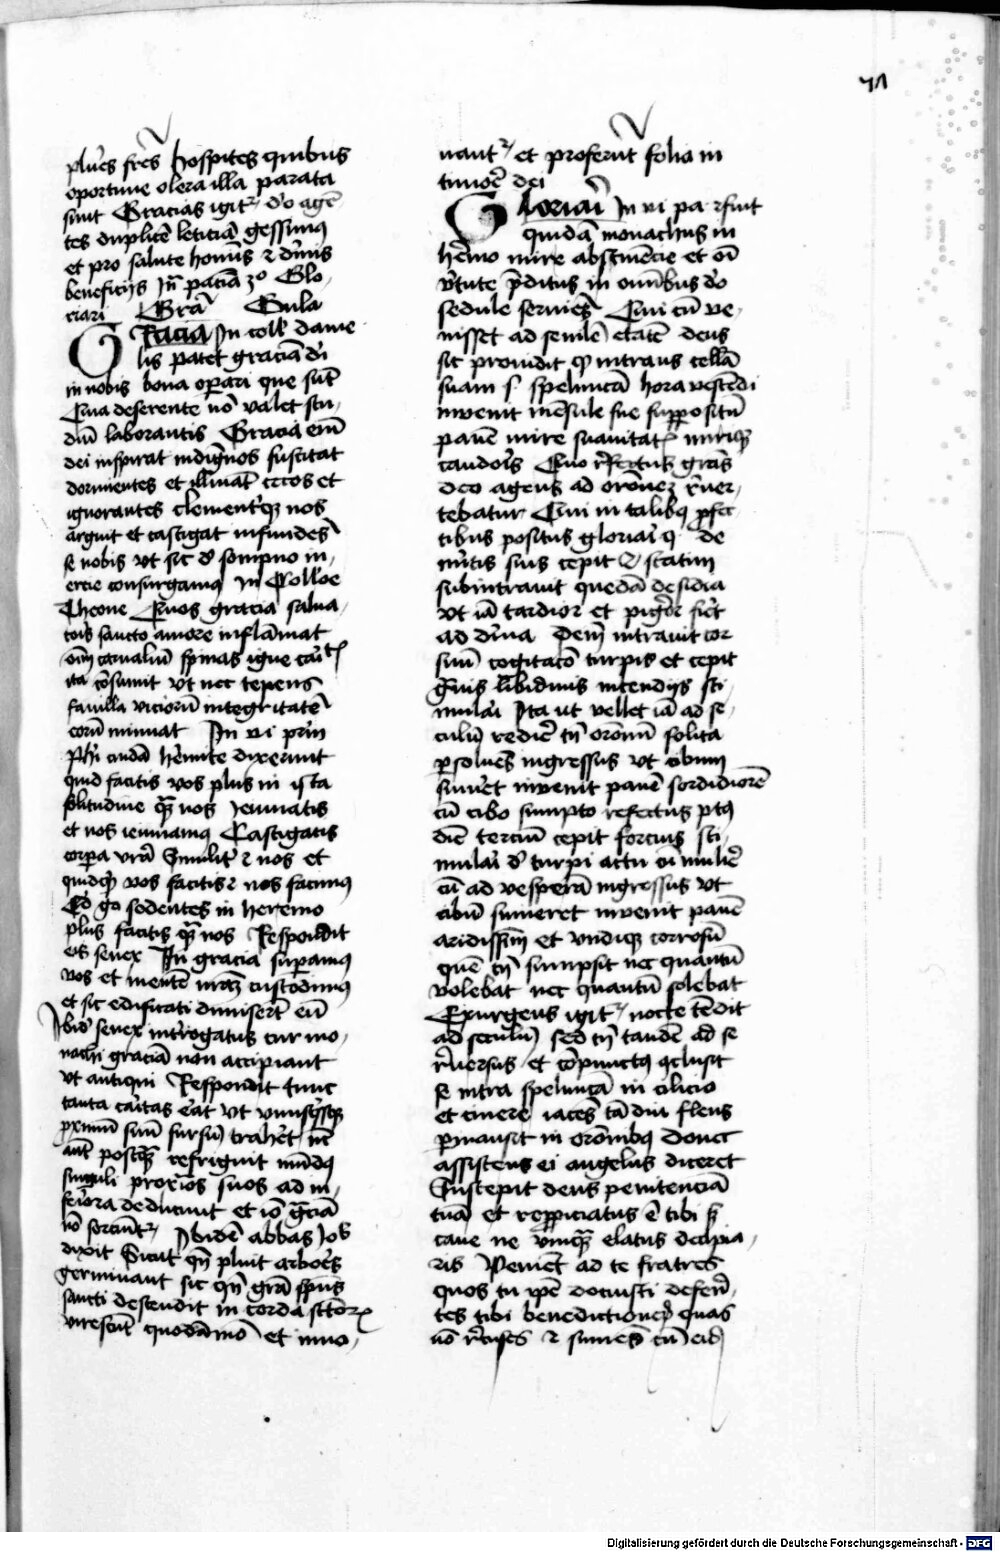 71
plures fres hospites quibus
oportune olera illa parata
sunt Gracias igitr do agen
tes duplice leticia gessimus
et pro salute homis & diuinis
beneficijs Inf pacia 30 Glo,
riari Gra Gula
Gracia In coll dame
lis patet gracia di
in nobis bona operari que sut
Qua deserente no valet stu,
diu laborantis Gracia eni
dei inspirat indignos suscitat
dormientes et illuiat cecos et
ignorantes clementq nos
arguit et castigat infundes
se nobis vt sic de sompno in,
ercie consurgamus In Colloe
Theone Quos gracia salua,
toris sancto amore inflamat
oim carnaliu spinas igne caritis
ita cosumit vt nec tepens
fauilla viciorum integritate
eorum minuat In vi prim
Phi cuida heremite dixerunt
quid facitis vos plus in ista
solitudine qua nos Ieiunatis
et nos ieiunamus Castigatis
corpa vra Similiter & nos et
quidquid vos facitis & nos facimus
Ed go sedentes in heremo
plus facitis qua nos Respondit
eis senex In gracia superamus
vos et mente nram custodimus
et sic edificati dimiserunt eu
Ibide senex interrogatus cur mo,
nachi gracia non accipiant
vt antiqui Respondit tunc
tanta caritas erat vt vnusquisque
proximu suu sursu traheret nuc
aut postqua refriguit mudus
singuli proximos suos ad in,
feriora deducunt et io gracia
no sorciuntr Ibidem abbas Iob
dixit Sicut qn pluit arbores
germinant sic qn gra spus
sancti descendit in corda sctorum
virescunt quodamo et inno,
uantr et proferut folia in
timore dei
Gloriari In vi pa & fuit
quida monachus in
heremo mire abstinencie et oi
virtute preditus in omibus do
sedule seruies Qui cu ve,
nisset ad senile etate deus
sic prouidit q intrans cella
suam s spelunca hora vescedi
inuenit mesule sue suppositu
pane mire suauitatis miriq
candoris Quo refectus gras
deo agens ad oronez reuer,
tebatur Qui in talibus profec
tibus positus gloriari q de
meritis suis cepit & statim
subintrauit queda desidia
vt ia tardior et pigrior fieret
ad diuina Dem intrauit cor
suu cogitaco turpis et cepit
grauis libidinis incendijs sti,
mulari Ita ut vellet ia ad se,
culu redire tn oronum solita
psolues ingressus vt cibum
sumeret inuenit pane sordidiore
cu cibo sumpto refectus post
die terciu cepit forcius sti,
mulari de turpi actu cu muliere
cu ad vespera ingressus vt
cibu sumeret inuenit pane
aridissimu et vndique corrosu
que tn sumpsit nec quantu
volebat nec quantu solebat
Exurgens igitr nocte tendit
ad seculum sed tn tande ad se
reuersus et copunctus oclusit
se intra spelunca in cilicio
et cinere iaces ta diu flens
permansit in oronibus donec
assistens ei angelus diceret
Suscepit deus penitencia
tua et reppiciatus e tibi s
caue ne vnqua elatus decipia,
ris Venient ad te fratres
quos tu ipe docuisti deferen,
tes tibi benedictiones quas
no recuses & sumes cu eis
Digitalisierung gefördert durch die Deutsche Forschungsgemeinschaft - DFG